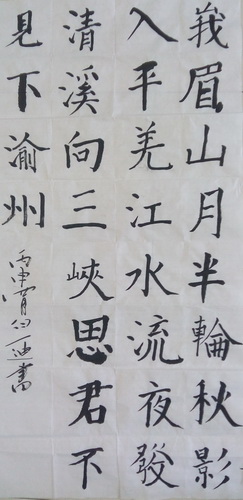 峩眉山月半輪秋影
入平羌江水流夜發
清溪向三峽思君不
見下渝州
丙申白迪書